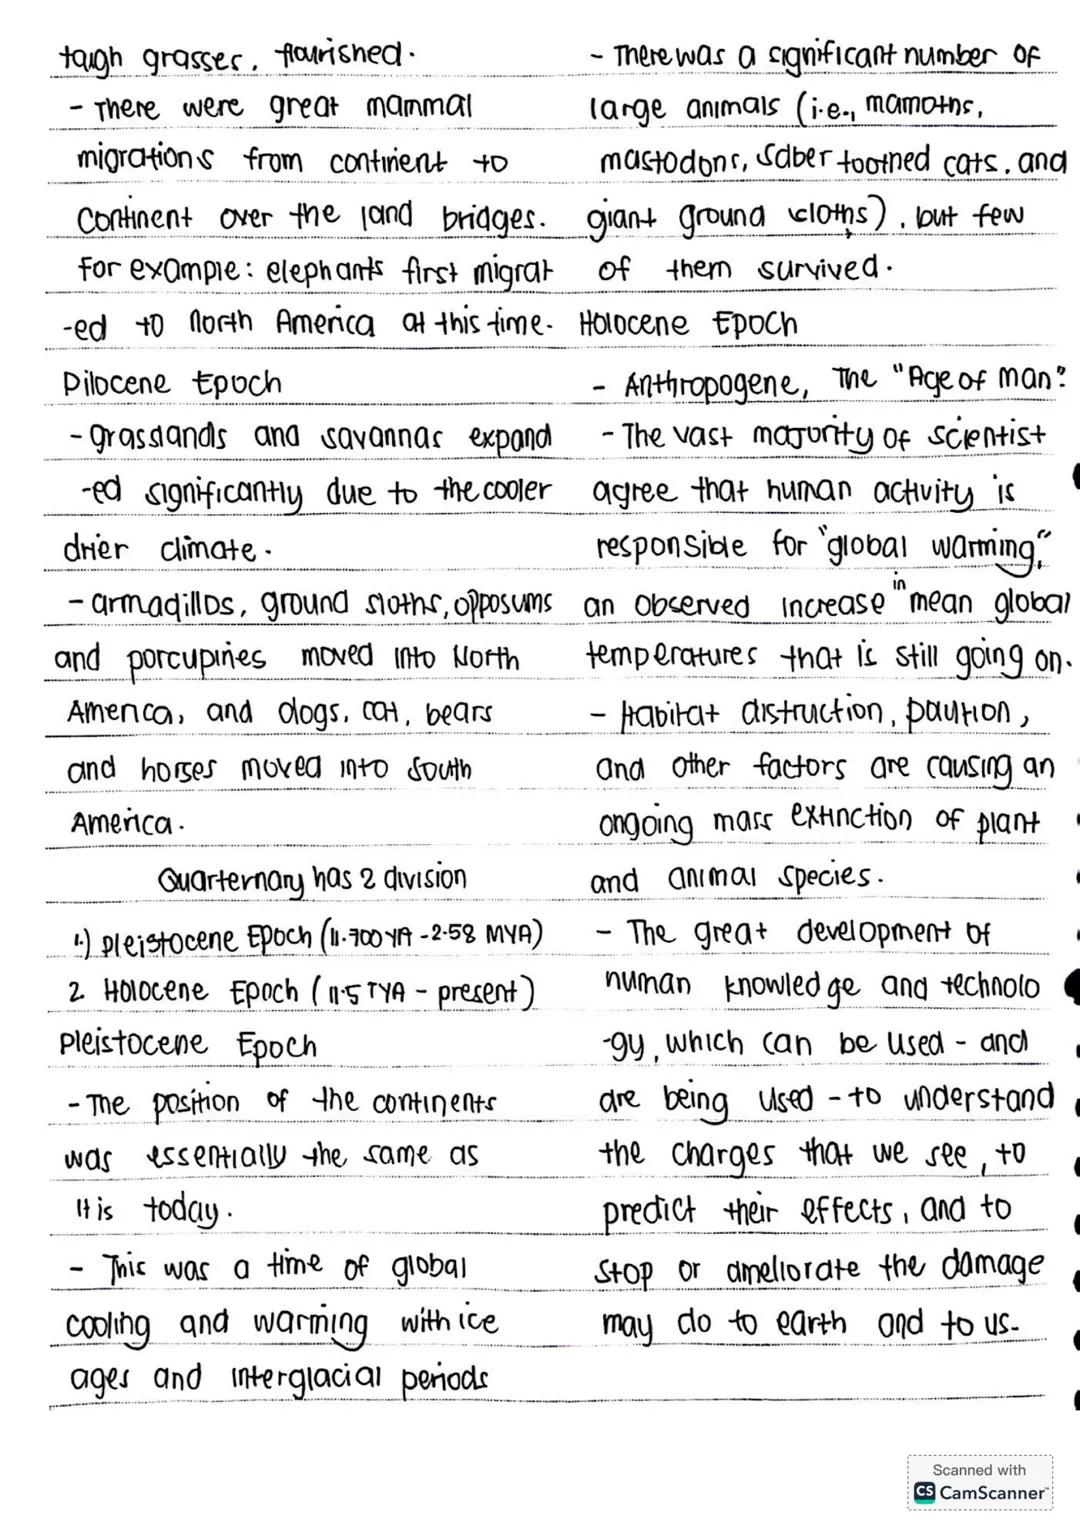 tough grasses, flourished.
- There were great mammal
migrations from continent to
Continent over the land bridges.
For example: elephants first migrat
-ed to North America at this time.
Pilocene Epoch
- grasslands and savannas expand
-ed significantly due to the cooler
drier climate.
- armadillos, ground sloths, opposums
and porcupines moved into North
America, and dogs, cat, bears
and horses moved into South
America.
Quarternary has 2 division
1.) pleistocene Epoch (11.700 YA - 2.58 MYA)
2. Holocene Epoch (11.5 TYA - present)
Pleistocene Epoch
- The position of the continents
was essentially the same as
It is today.
- This was a time of global
cooling and warming with ice
ages and interglacial periods
- There was a significant number of
large animals (i.e., mamoths,
mastodons, saber toothed cats, and
giant ground sloths), but few
of them survived.
Holocene Epoch
- Anthropogene, The "Age of man".
- The vast majority of scientist
agree that human activity is
responsible for "global warming,"
an observed increase in mean global
temperatures that is still going on.
- Habitat distruction, pollution,
and other factors are causing an
ongoing mass extinction of plant
and animal species.
- The great development of
human knowledge and technolo
-gy, which can be used - and
are being used - to understand
the charges that we see, to
predict their effects, and to
stop or ameliorate the damage
may do to earth and to us.
Scanned with
CS CamScanner